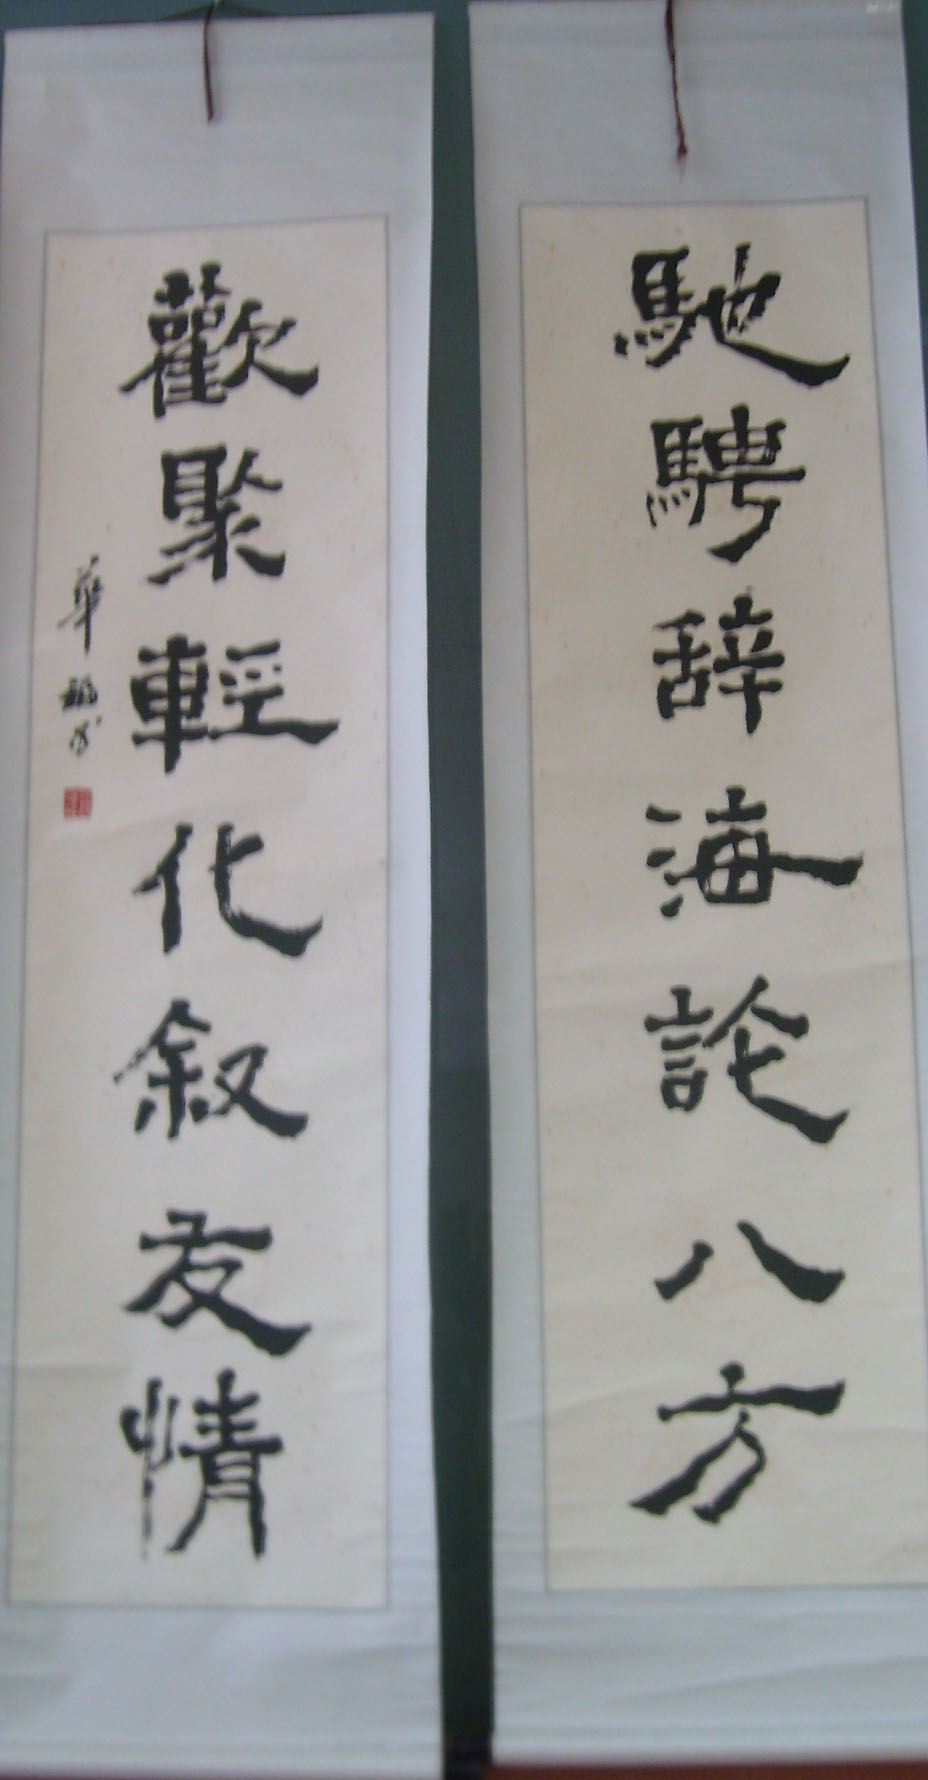 馳騁辞海論八方
歡聚輕化叙友情
華